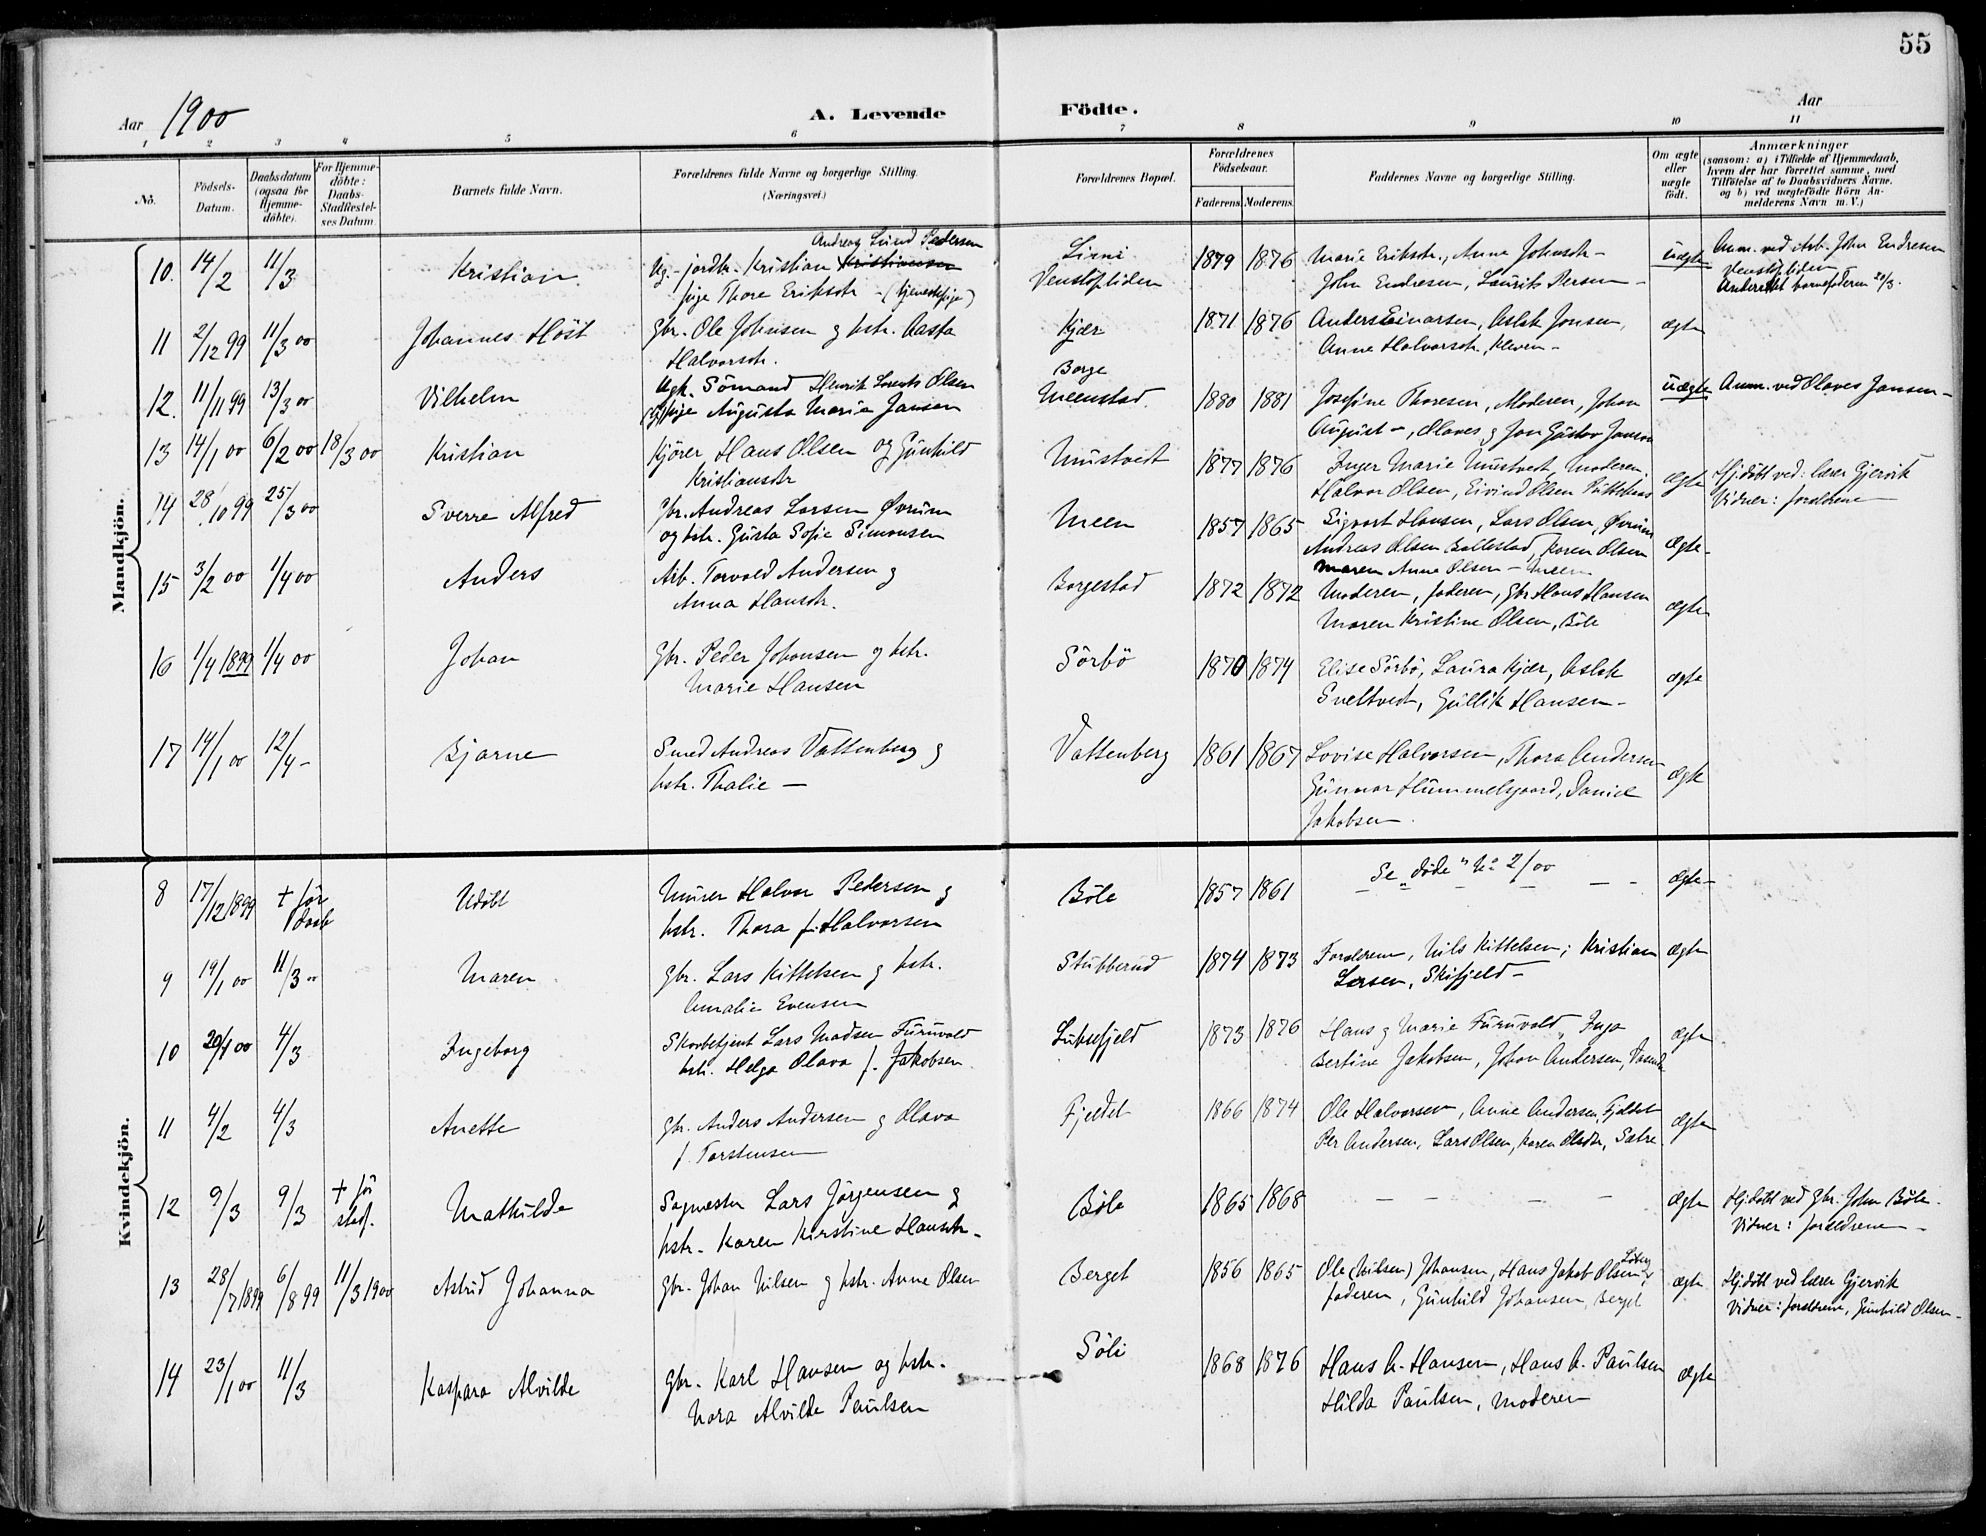 55
Aar 1900 A. Levende Födte. Aar
1 2 3 4 5 6 7 8 9 10 11
No. Födsels-Datum. Daabsdatum (ogsaa for Hjemme-döbte). For Hjemme-döbte: Daabs-Stadfæstel-ses Datum. Barnets fulde Navn. Forældrenes fulde Navne og borgerlige Stilling. (Næringsvei.) Forældrenes Bopæl. Forældrenes Födselsaar. Faderens. Moderens. Faddernes Navne og borgerlige Stilling. Om ægte eller uægte födt. Anmærkninger (saasom: a) i Tilfælde af Hjemmedaab, hvem der har forrettet samme, med Tilföielse af to Daabsvidners Navne, og b) ved uægtefödte Börn An-melderens Navn m. V.)
Mandkjön.
Andreas Lund Pedersen
10. 14/2 11/3 Kristian Ug. jordbr. Kristian Kristiansen Venstøpliden 1879 1876 Marie Eriksdr., Anne Johnsdr - uægte Anm. ved Arb. John Endresen
pige Thore Eriksdr - (tjenestepige) John Endresen, Laurits Persen - Venstøpliden
barnefaderen 20/3.
11 2/12 99 11/3 00 Johannes Höst Gbr. Ole Johnsen og hstr. Aasta Kjær 1871 1876 Anders Einarsen, Aslak Jonsen, ægte
Halvorsdr. Anne Halvorsdr, Kleven -
12. 11/11 99 13/3 00 Vilhelm Ugk. Sömand Henrik Lorents Olsen Borge 1880 1881 Josefine Thoresen, Moderen, Johan uægte Anm. ved Olaves Jansen -
pige Augusta Marie Jansen Meenstad. August -, Olaves og Jon Gustav Jansen
13 14/1 00 6/2 00 18/3 00 Kristian Kjører Hans Olsen og Gunhild Mustvedt 1877 1876 Inger Marie Mustvedt, Moderen, ægte Hj.døbt ved: lærer Gjervik
Kristiansdr Halvor Olsen, Eivind Olsen Vidner: forældrene
14 28/10 99 25/3 00 Sverre Alfred Gbr. Andreas Larsen Øvrum Meen 1857 1865 Sigvart Hansen, Lars Olsen, Øvrum ægte -
og hstr. Gusta Sofie Simonsen Andreas Olsen Ballestad, Karen Olsen
Maren Anne Olsen - Meen
15 3/2 00 1/4 00 Anders Arb. Torvald Andersen og Borgestad 1872 1872 Moderen, faderen, Gbr Hans Hansen ægte
Anna Hansdr. Maren Kristine Olsen, Böle
16 1/4 1899 1/4 00 Johan Gbr. Peder Johansen og hstr. Sörbö 1870 1874 Elise Sörbö, Laura Kjær, Aslak ægte
Marie Hansen Sveltvedt, Gullik Hansen -
17 14/1 00 12/4 - Bjarne Smed Andreas Vattenberg og Vattenberg 1861 1867 Lovise Halvorsen, Thora Andersen ægte
hstr. Thalie - Gunnar Hummelgaard, Daniel
Jakobsen.
Kvindekjön.
8 17/12 1899 + før daab Udöbt Murer Halvor Pedersen og Böle 1857 1861 Se „døde" No 2/00 ægte -
hstr. Thora f. Halvorsen
9 19/1 00 11/3 00 Maren Gbr. Lars Kittelsen og hstr. Stubberud 1874 1873 Forældrene, Nils Kittelsen; Kristian ægte
Amalie Evensen Larsen, Skifjeld -
10 20/1 00 4/3 Ingeborg Skovbetjent Lars Madsen Furuvald Luksefjeld 1873 1876 Hans og Marie Furuvald, Inga ægte
hstr. Helga Olava f. Jakobsen. Bertine Jakobsen, Johan Andersen,
11 4/2 4/3 Anette Gbr. Anders Andersen og Olava Fjeldet 1866 1874 Ole Halvorsen, Anne Andersen, Fjeldet ægte
f. Torstensen Per Andersen, Lars Olsen, Karen Olsdtr, Satre
12 9/3 9/3 + før stadf. Mathilde Sagmester Lars Jörgensen og Böle 1865 1868 - - - - ægte Hj.døbt ved gbr. John Böle.
hstr. Karen Kirstine Hansdtr. Vidner: forældrene -
13 28/7 1899 6/8 99 11/3 1900 Astrid Johanna Gbr. Johan Nilsen og hstr. Anne Olsen Berget 1856 1865 Ole (Nilsen) Johansen, Hans Jakob Olsen, ægte Hj.døbt ved lærer Gjervik
faderen, Gunhild Johansen, Berget Vidner: forældrene, Gunhild Olsen -
14 23/1 00 11/3 Kaspara Alvilde Gbr. Karl Hansen og hstr. Söli 1868 1876 Hans A. Hansen, Hans A. Paulsen ægte
Nora Alvilde Paulsen Hilda Paulsen, Moderen